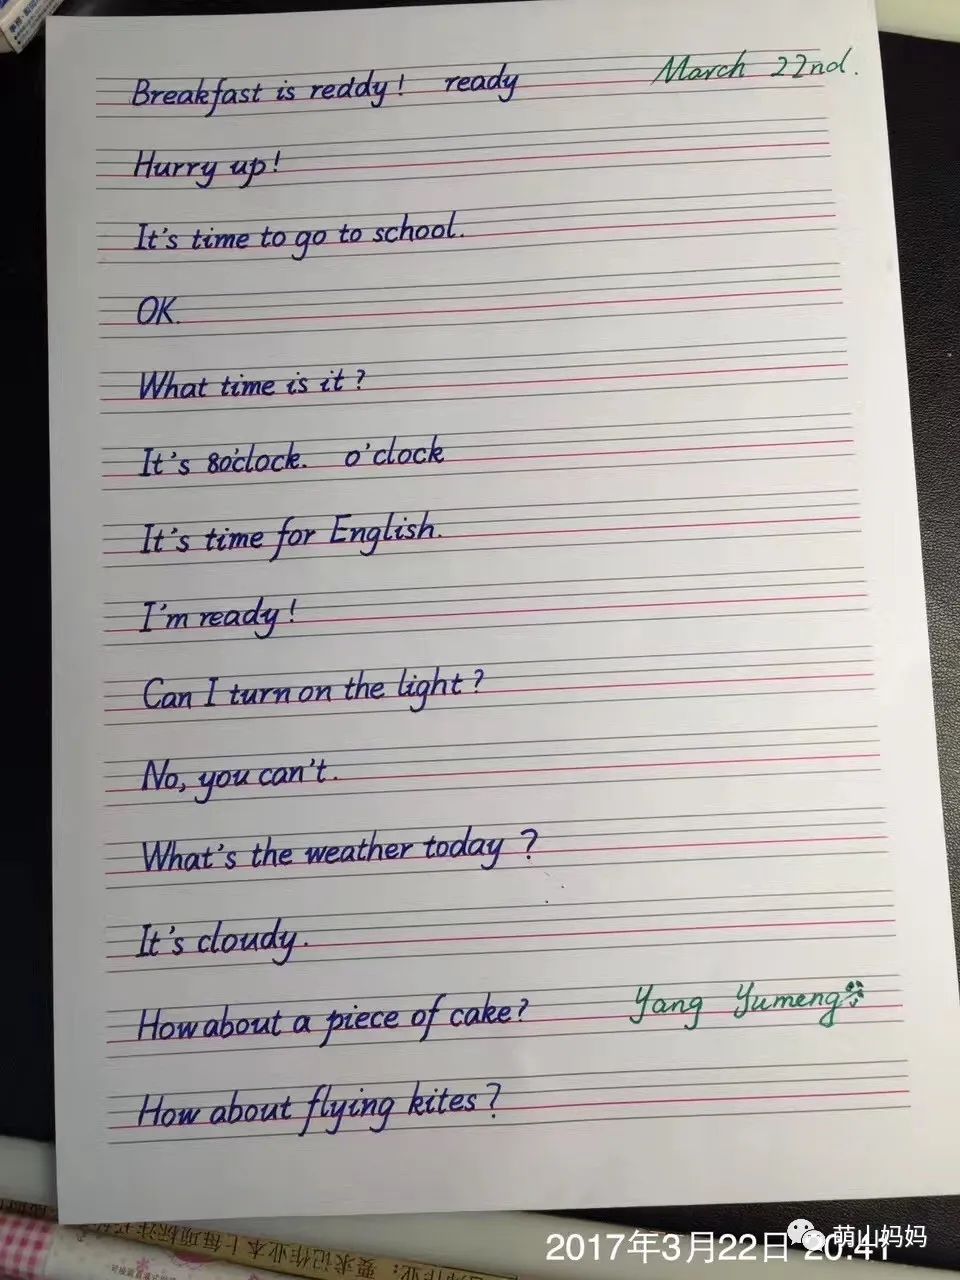 Breakfast is reddy! ready March 22nd.
Hurry up!
It's time to go to school.
OK.
What time is it?
It's 8o'clock. o'clock
It's time for English.
I'm ready!
Can I turn on the light?
No, you can't.
What's the weather today?
It's cloudy.
How about a piece of cake? Yang Yumeng
How about flying kites?
要求记作业本上每项标注
2017年3月22日 20:41
萌山妈妈